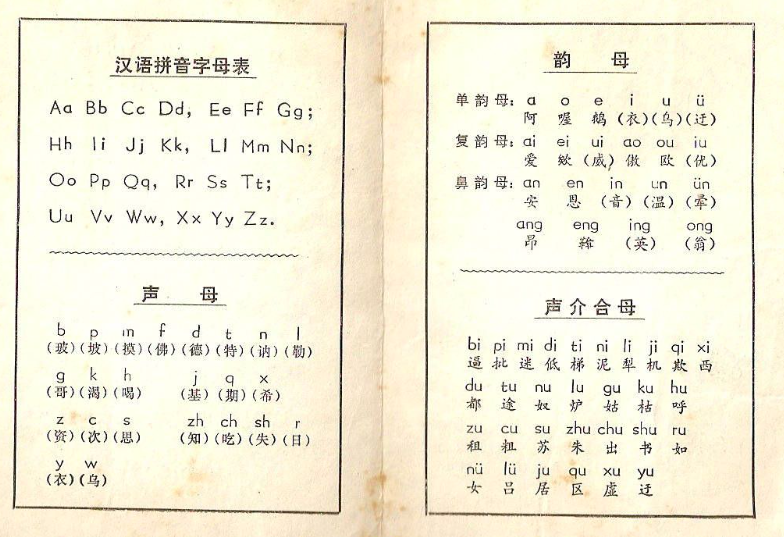 汉语拼音字母表
Aa Bb Cc Dd, Ee Ff Gg;
Hh Ii Jj Kk, Ll Mm Nn;
Oo Pp Qq, Rr Ss Tt;
Uu Vv Ww, Xx Yy Zz.
声 母
b p m f d t n l
(玻)(坡)(摸)(佛)(德)(特)(讷)(勒)
g k h j q x
(哥)(渴)(喝) (基)(期)(希)
z c s zh ch sh r
(资)(次)(思) (知)(吃)(失)(日)
y w
(衣)(乌)
韵 母
单韵母: a o e i u ü
阿 喔 鹅 (衣)(乌)(迂)
复韵母: ai ei ui ao ou iu
爱 欸 (威) 傲 欧 (优)
鼻韵母: an en in un ün
安 恩 (音) (温) (晕)
ang eng ing ong
昂 鞥 (英) (翁)
声介合母
bi pi mi di ti ni li ji qi xi
逼 批 迷 低 梯 泥 犁 机 欺 西
du tu nu lu gu ku hu
都 途 奴 炉 姑 枯 呼
zu cu su zhu chu shu ru
租 粗 苏 朱 出 书 如
nü lü ju qu xu yu
女 吕 居 区 虚 迂